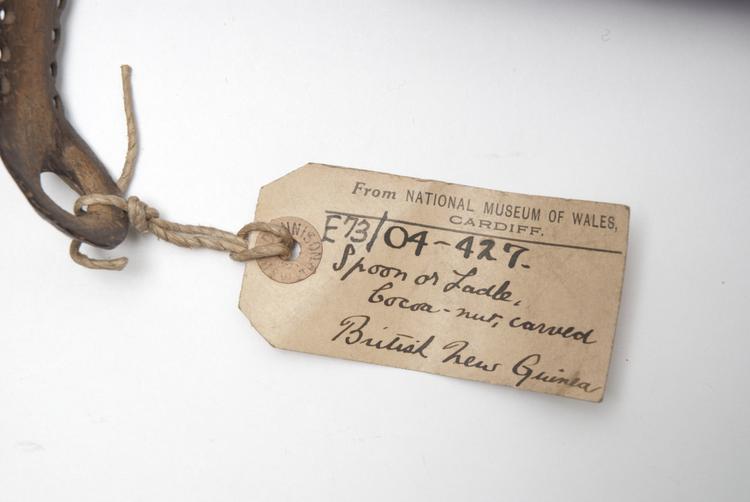 From NATIONAL MUSEUM OF WALES,
CARDIFF.
E73/04-427.
Spoon or Ladle,
Cocoa-nut, carved
British New Guinea